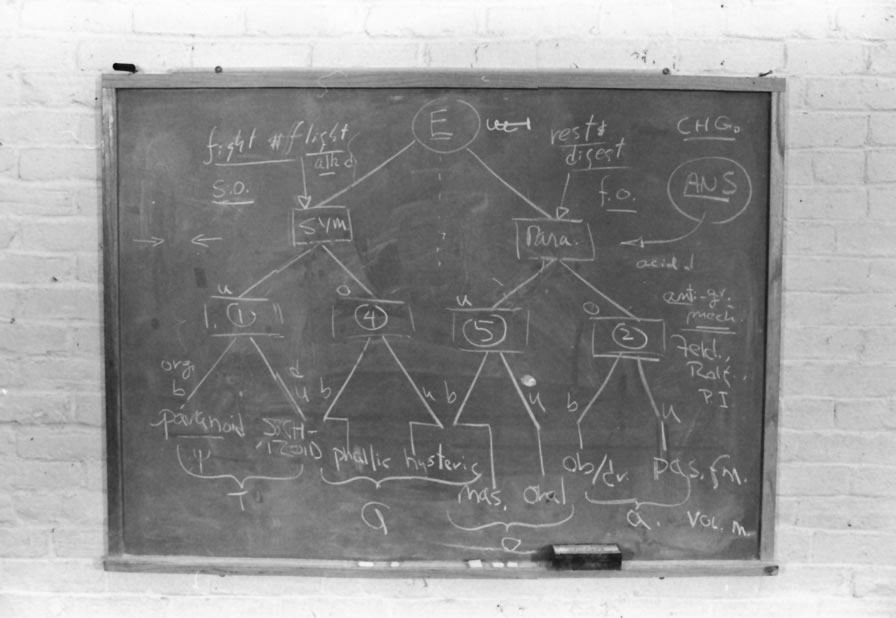 E
CHG.
fight flight
rest &
digest
S.O.
f.O.
ANS
SYM
Para.
acid
u
o
u
o
anti-gr.
mech.
1
4
5
2
Feld.,
Rolf.,
P.I
org.
d
b
u
b
u
b
u
b
u
paranoid
SCH-
IZOID
phallic
hysteric
ob/dr.
pas. fm.
ψ
mas.
oral
T
G
O
a.
VOL. M.